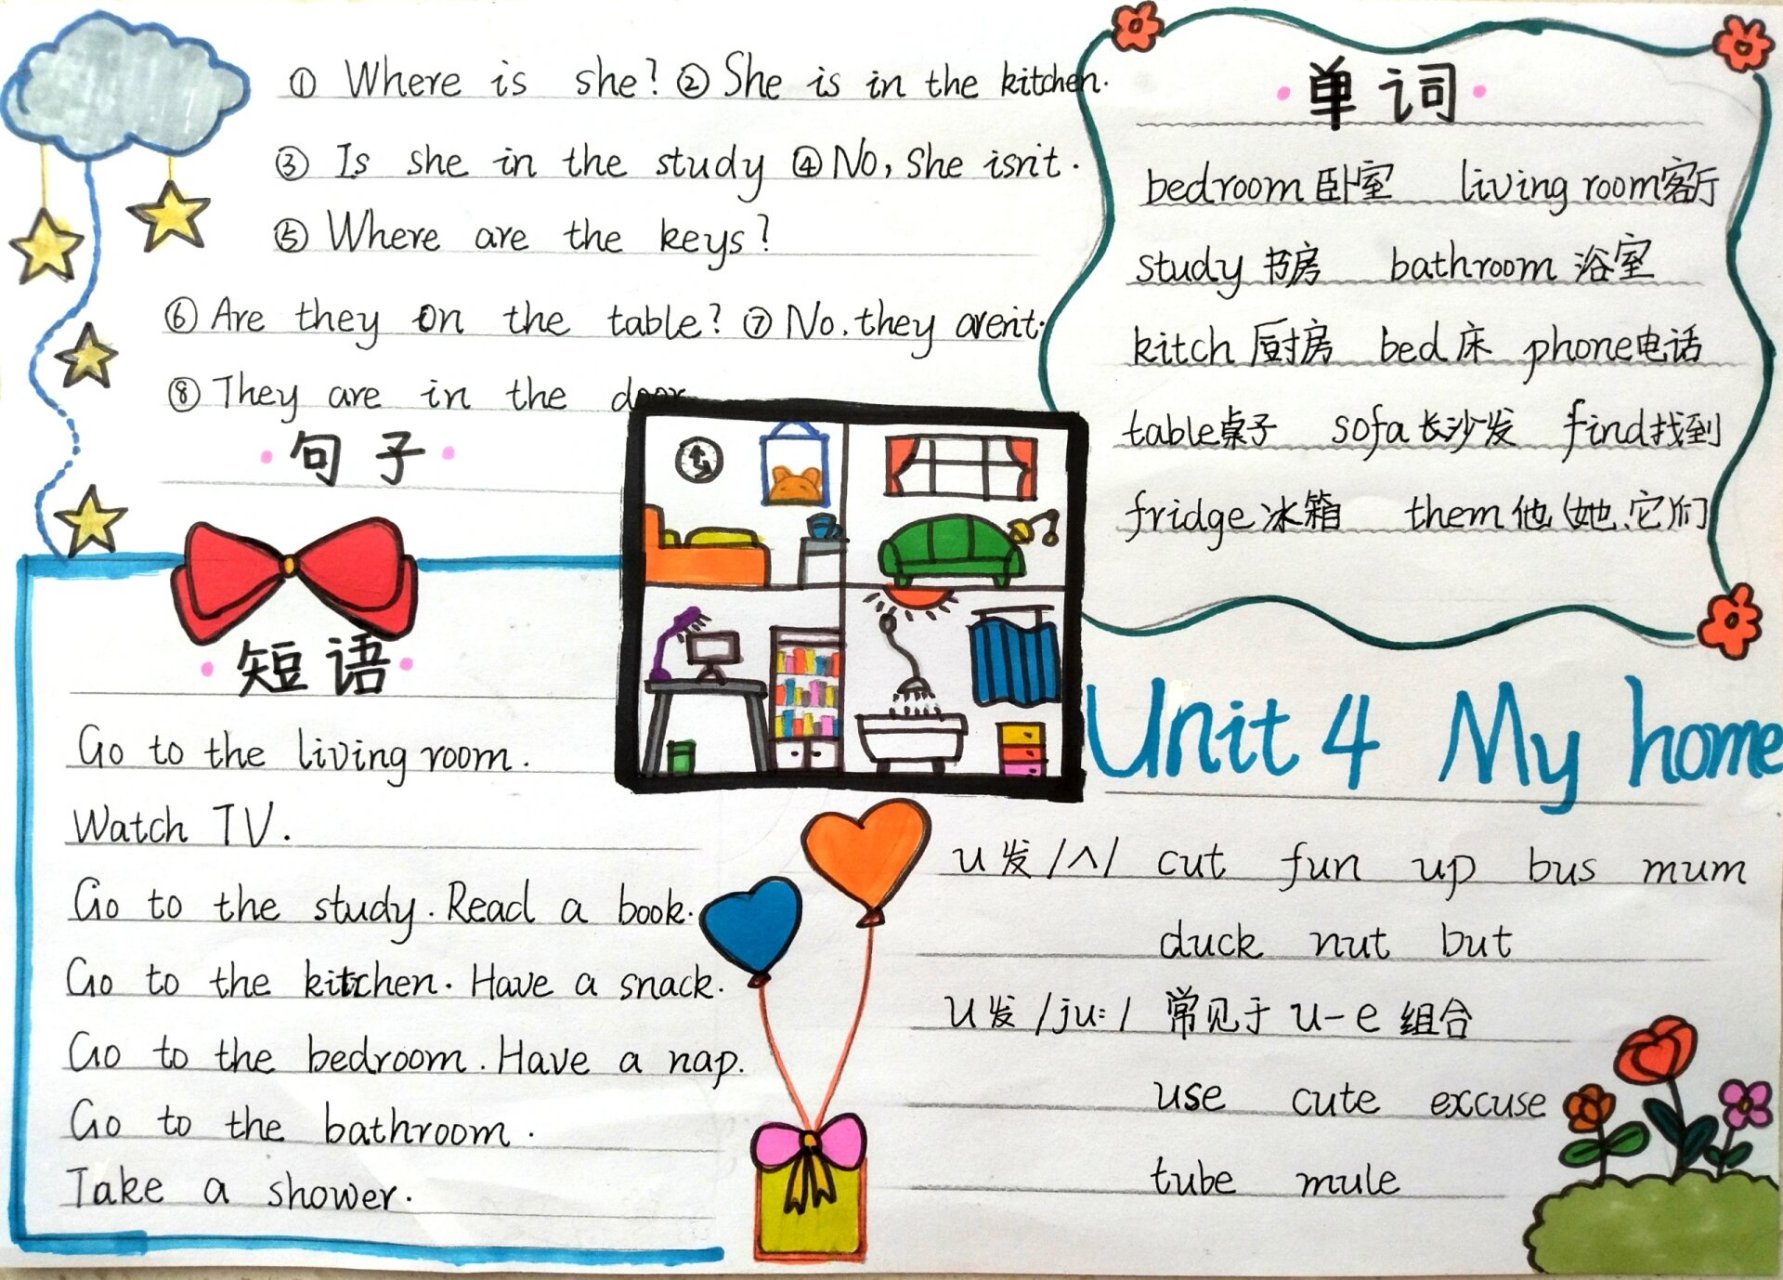 ① Where is she? ② She is in the kitchen.
③ Is she in the study ④ No, She isn't.
⑤ Where are the keys?
⑥ Are they on the table? ⑦ No. they aren't.
⑧ They are in the door
句子
单词
bedroom 卧室 living room 客厅
study 书房 bathroom 浴室
kitch 厨房 bed 床 phone 电话
table 桌子 sofa 长沙发 find 找到
fridge 冰箱 them 他(她、它)们
短语
Go to the living room.
Watch TV.
Go to the study. Read a book.
Go to the kitchen. Have a snack.
Go to the bedroom. Have a nap.
Go to the bathroom.
Take a shower.
Unit 4 My home
u 发 /ʌ/ cut fun up bus mum
duck nut but
u 发 /ju:/ 常见于 u-e 组合
use cute excuse
tube mule